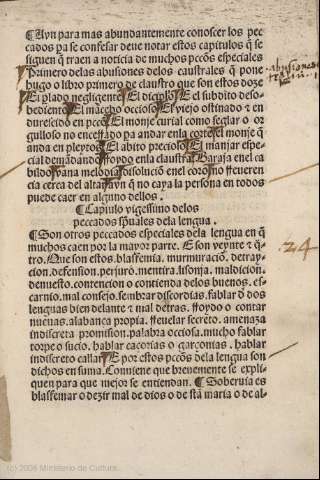 ¶ Ayn para mas abundantemente conoscer los pec
cados pa se confesar deue notar estos capitulos q̃ se
siguen q̃ traen a noticia de muchos pc̃cos especiales
Primero delas abusiones delos caustrales q̃ pone
hugo o libro primero de claustro que son estos doze
El plado negligente El disciplo El subdito deso-
bediente El mãcebo occioso El viejo ostinado ⁊ en
durescido en pc̃co El monje curial como seglar o or
gulloso no encerrado pa andar enla corte El monje q̃
anda en pleytos El abito precioso El manjar espe-
cial demandando Roydo enla claustra Baraja enel ca
bildo vana melodia dissolució enel coro no reueren
cia cerca del altar ayn q̃ no caya la persona en todos
puede caer en alguno dellos.
¶ Capiulo vigessimo delos
peccados spũales dela lengua.
¶ Son otros peccados especiales dela lengua en q̃
muchos caen por la mayor parte. E son veynte ⁊ q̃-
tro. Que son estos. blasfemia. murmuració. detray-
cion. defension. perjuro. mentira. lisonja. maldicion.
denuesto. contencion o contienda delos buenos. es-
carnio. mal consejo. sembrar discordias. fablar d̃ dos
lenguas bien delante ⁊ mal detras. Roydo o contar
nueuas. alabança propia. Reuelar secreto. amenaza
indiscreta promission. palabra occiosa. mucho fablar
torpe o suzio. hablar caçorias o garçonias. hablar
indiscreto callar E por estos pc̃cos dela lengua son
dichos en suma. Conuiene que breuemente se expli-
quen para que mejor se entiendan. ¶ Soberuia es
blasfemar o dezir mal de dios o de sc̃tã maria o de al-
abusiones
24
(c) 2006 Ministerio de Cultura